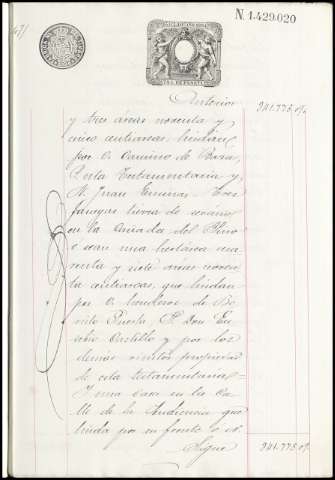 N. 1.429.020
Anterior 341.775
y tres áreas noventa y
cinco centiareas, lindan
por O. Camino de Baza,
esta Testamentaria y
N. Juan
fanegas tierra de secano
en la Cañada del
o sean una hectárea cua
renta y siete áreas noven
ta centiareas, que lindan
por O. herederos de Be
nito Puerta, P. Don Eu
sebio Castillo y por los
demas vientos propiedad
de esta testamentaria=
Y una casa en la Ca
lle de la Audiencia que
linda por su frente ó N.
Sigue 341.775